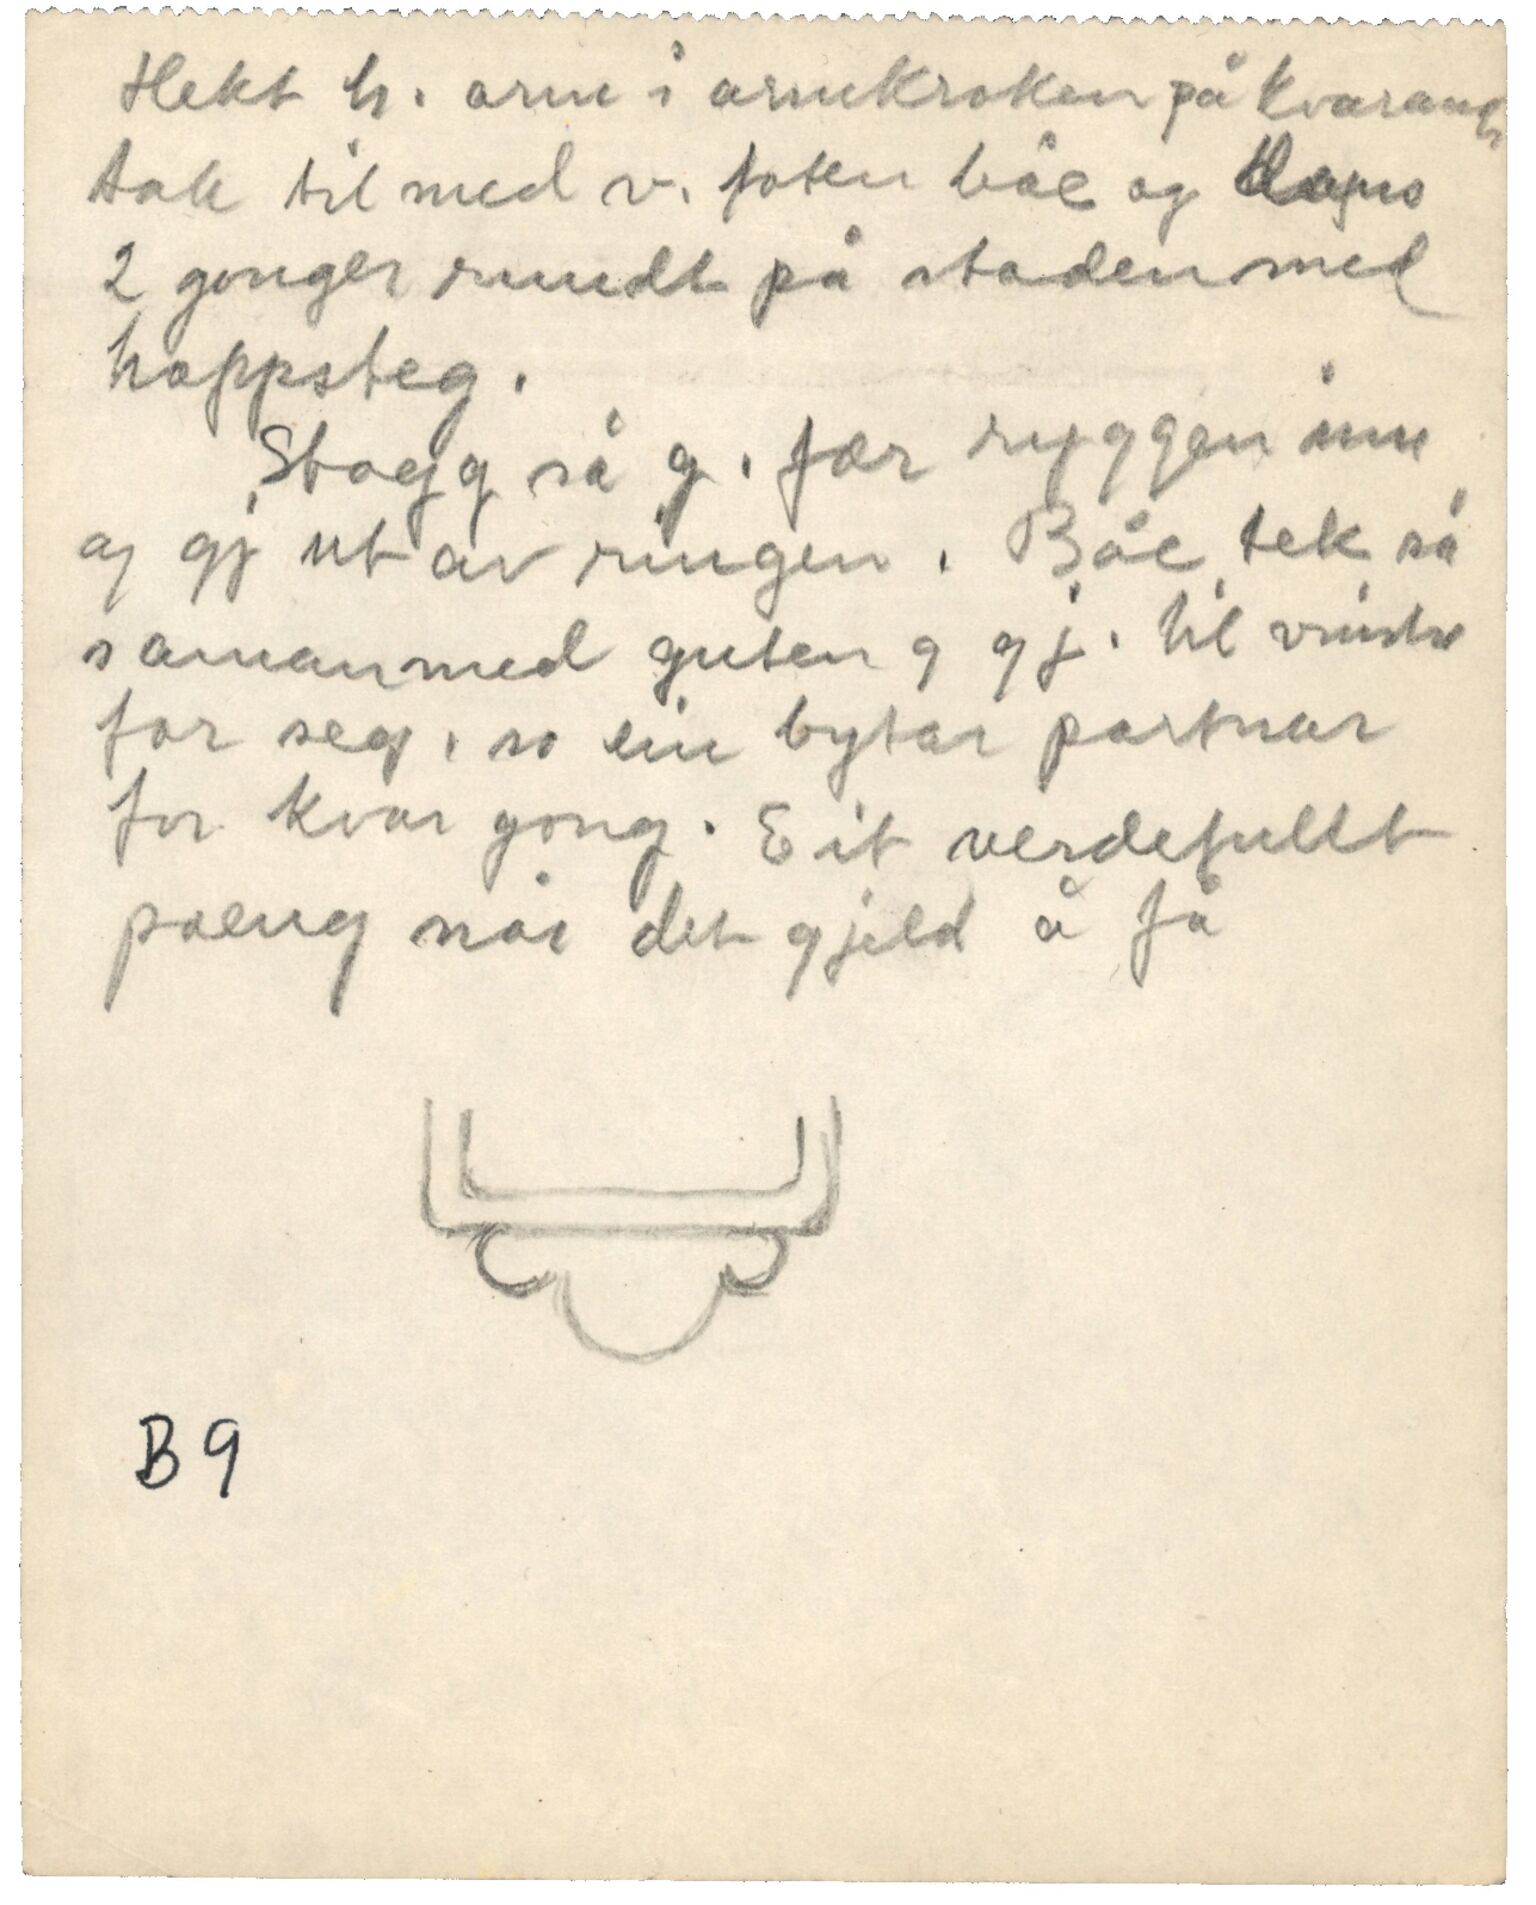 Hekt h. arm i armkroken på kvarandr
tak til med v. foten båe og dans
2 gonger rundt på staden med
hoppsteg.
Stogg så g. fær ryggen inn
og gj ut av ringen. Båe tek så
saman med guten g gj. til vinstre
for seg, so ein bytar partnar
for kvar gong. Eit verdefullt
poeng når det gjeld å få
B9